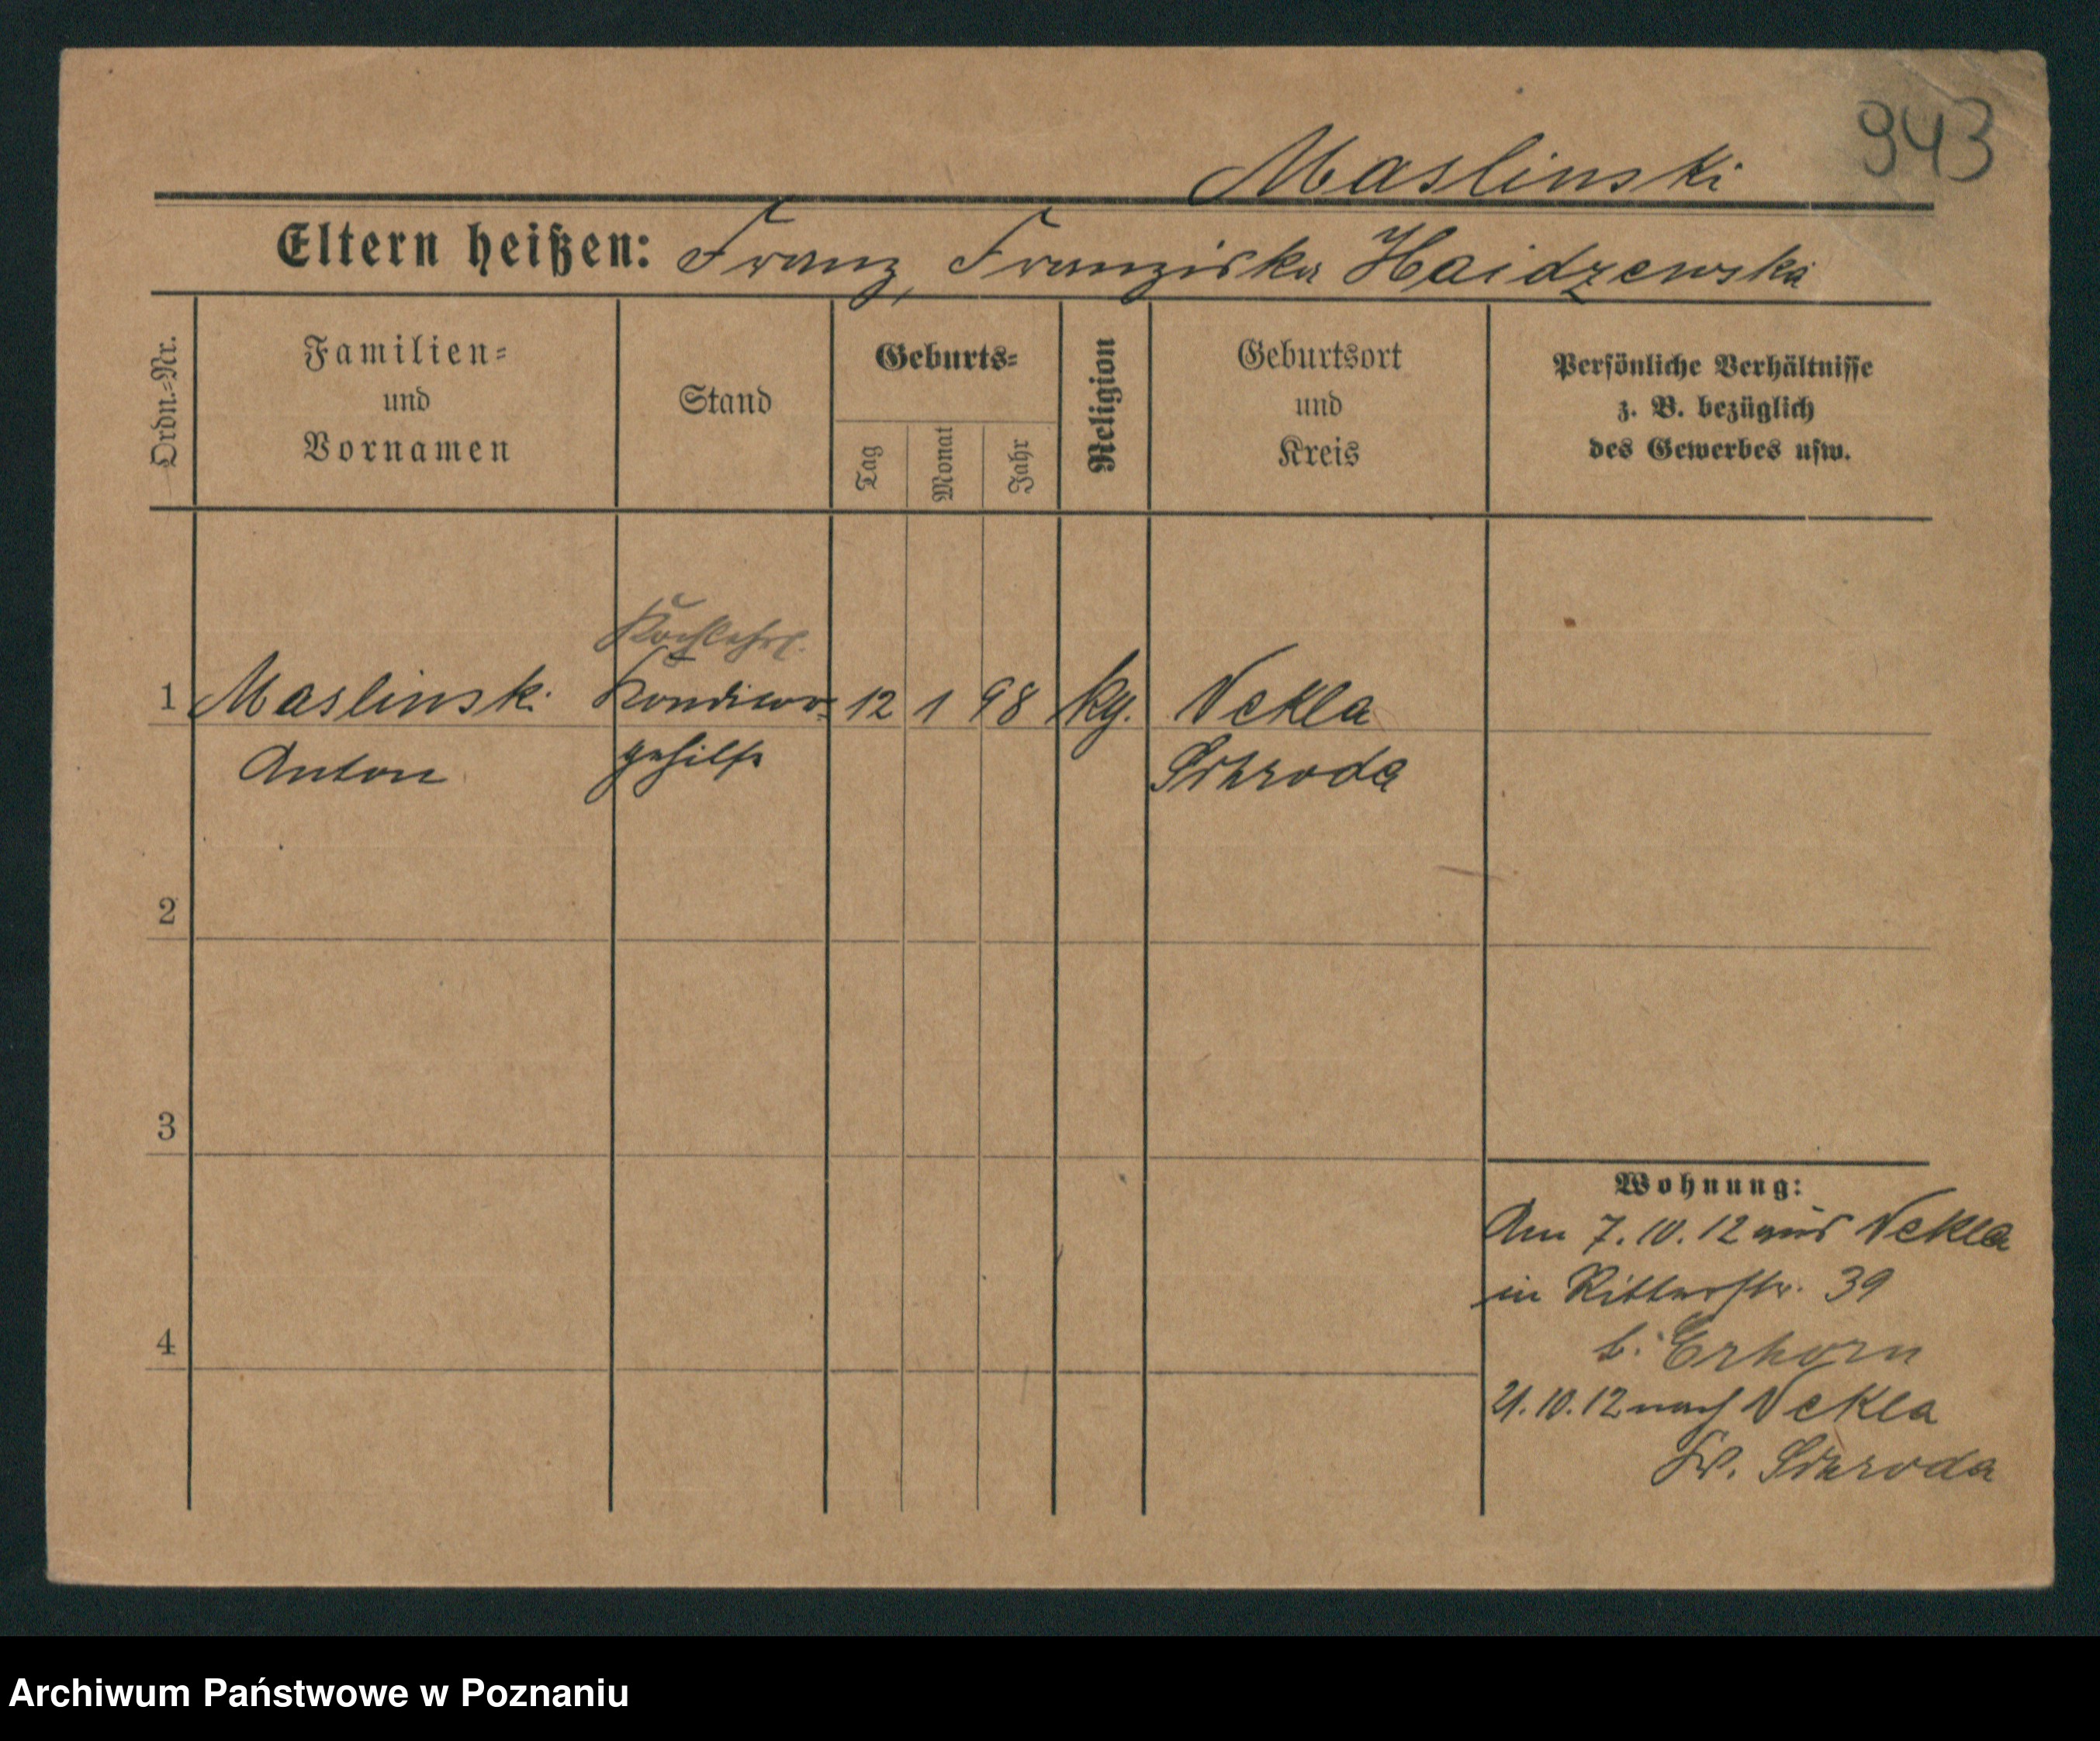 943
Maslinski
Eltern heißen: Franz, Franziska Haidzewska
Ordn.=Nr.
Familien=
und
Vornamen
Stand
Geburts=
Tag
Monat
Jahr
Religion
Geburtsort
und
Kreis
Persönliche Verhältnisse
z. B. bezüglich
des Gewerbes usw.
Kochlehrl.
1 Maslinski 12 1 98 Nekla
Anton gehilfe Schroda
2
3
4
Wohnung:
Am 7.10.12 aus Nekla
in Ritterstr. 39
b. Erhorn
21.10.12 nach Nekla
Kr. Schroda
Archiwum Państwowe w Poznaniu